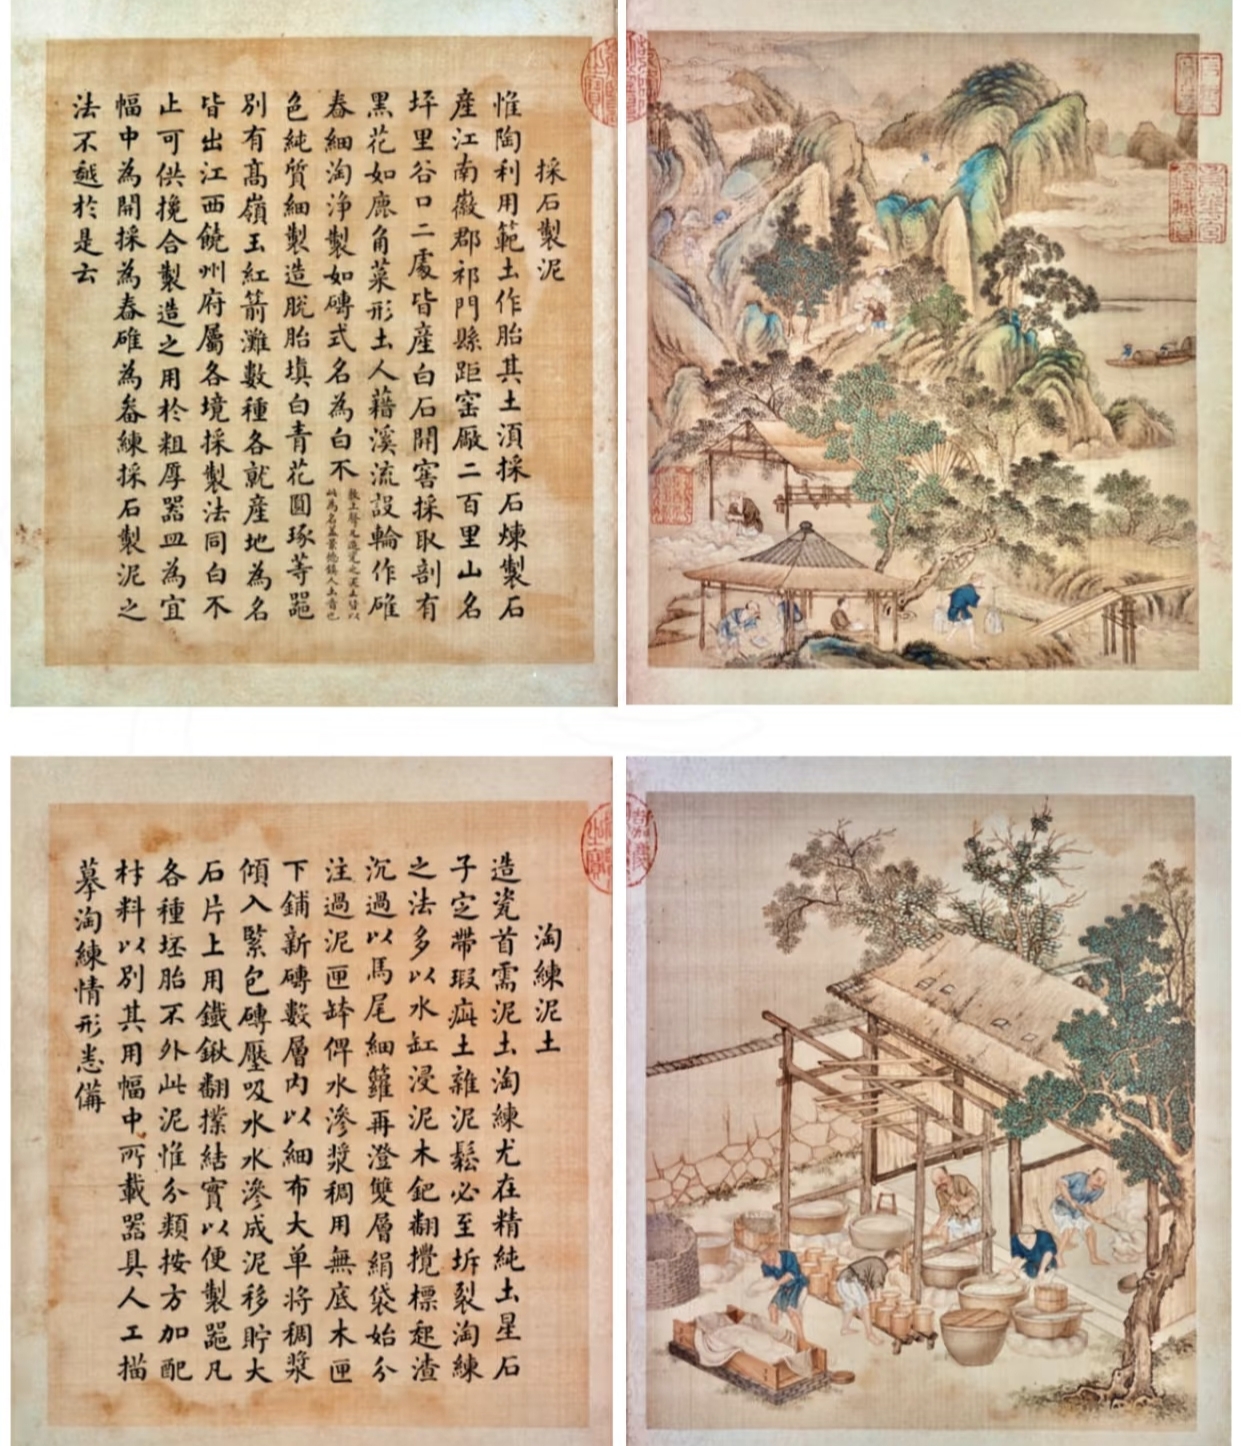 採石製泥
惟陶利用範土作胎其土湏採石煉製石
產江南徽郡祁門縣距窑廠二百里山名
坪里谷口二處皆產白石開窖採取剖有
黑花如鹿角菜形土人藉溪流設輪作碓
舂細淘淨製如磚式名為白不敦上聲凡造瓷之泥土皆以此為名盖景德鎮人土音也
色純質細製造脫胎填白青花圓琢等噐
別有髙嶺玉紅箭灘數種各就產地為名
皆出江西饒州府屬各境採製法同白不
止可供攙合製造之用於粗厚器皿為宜
幅中為開採為舂碓為畚練採石製泥之
法不越於是云
淘練泥土
造瓷首需泥土淘練尤在精純土星石
子定帶瑕疵土雜泥鬆必至坼裂淘練
之法多以水缸浸泥木鈀翻攪標起渣
沉過以馬尾細籮再澄雙層絹袋始分
注過泥匣缽俾水滲漿稠用無底木匣
下鋪新磚數層內以細布大单将稠漿
傾入緊包磚壓吸水水滲成泥移貯大
石片上用鐵鍬翻撲結實以便製噐凡
各種坯胎不外此泥惟分類按方加配
材料以別其用幅中所載器具人工描
摹淘練情形悉備